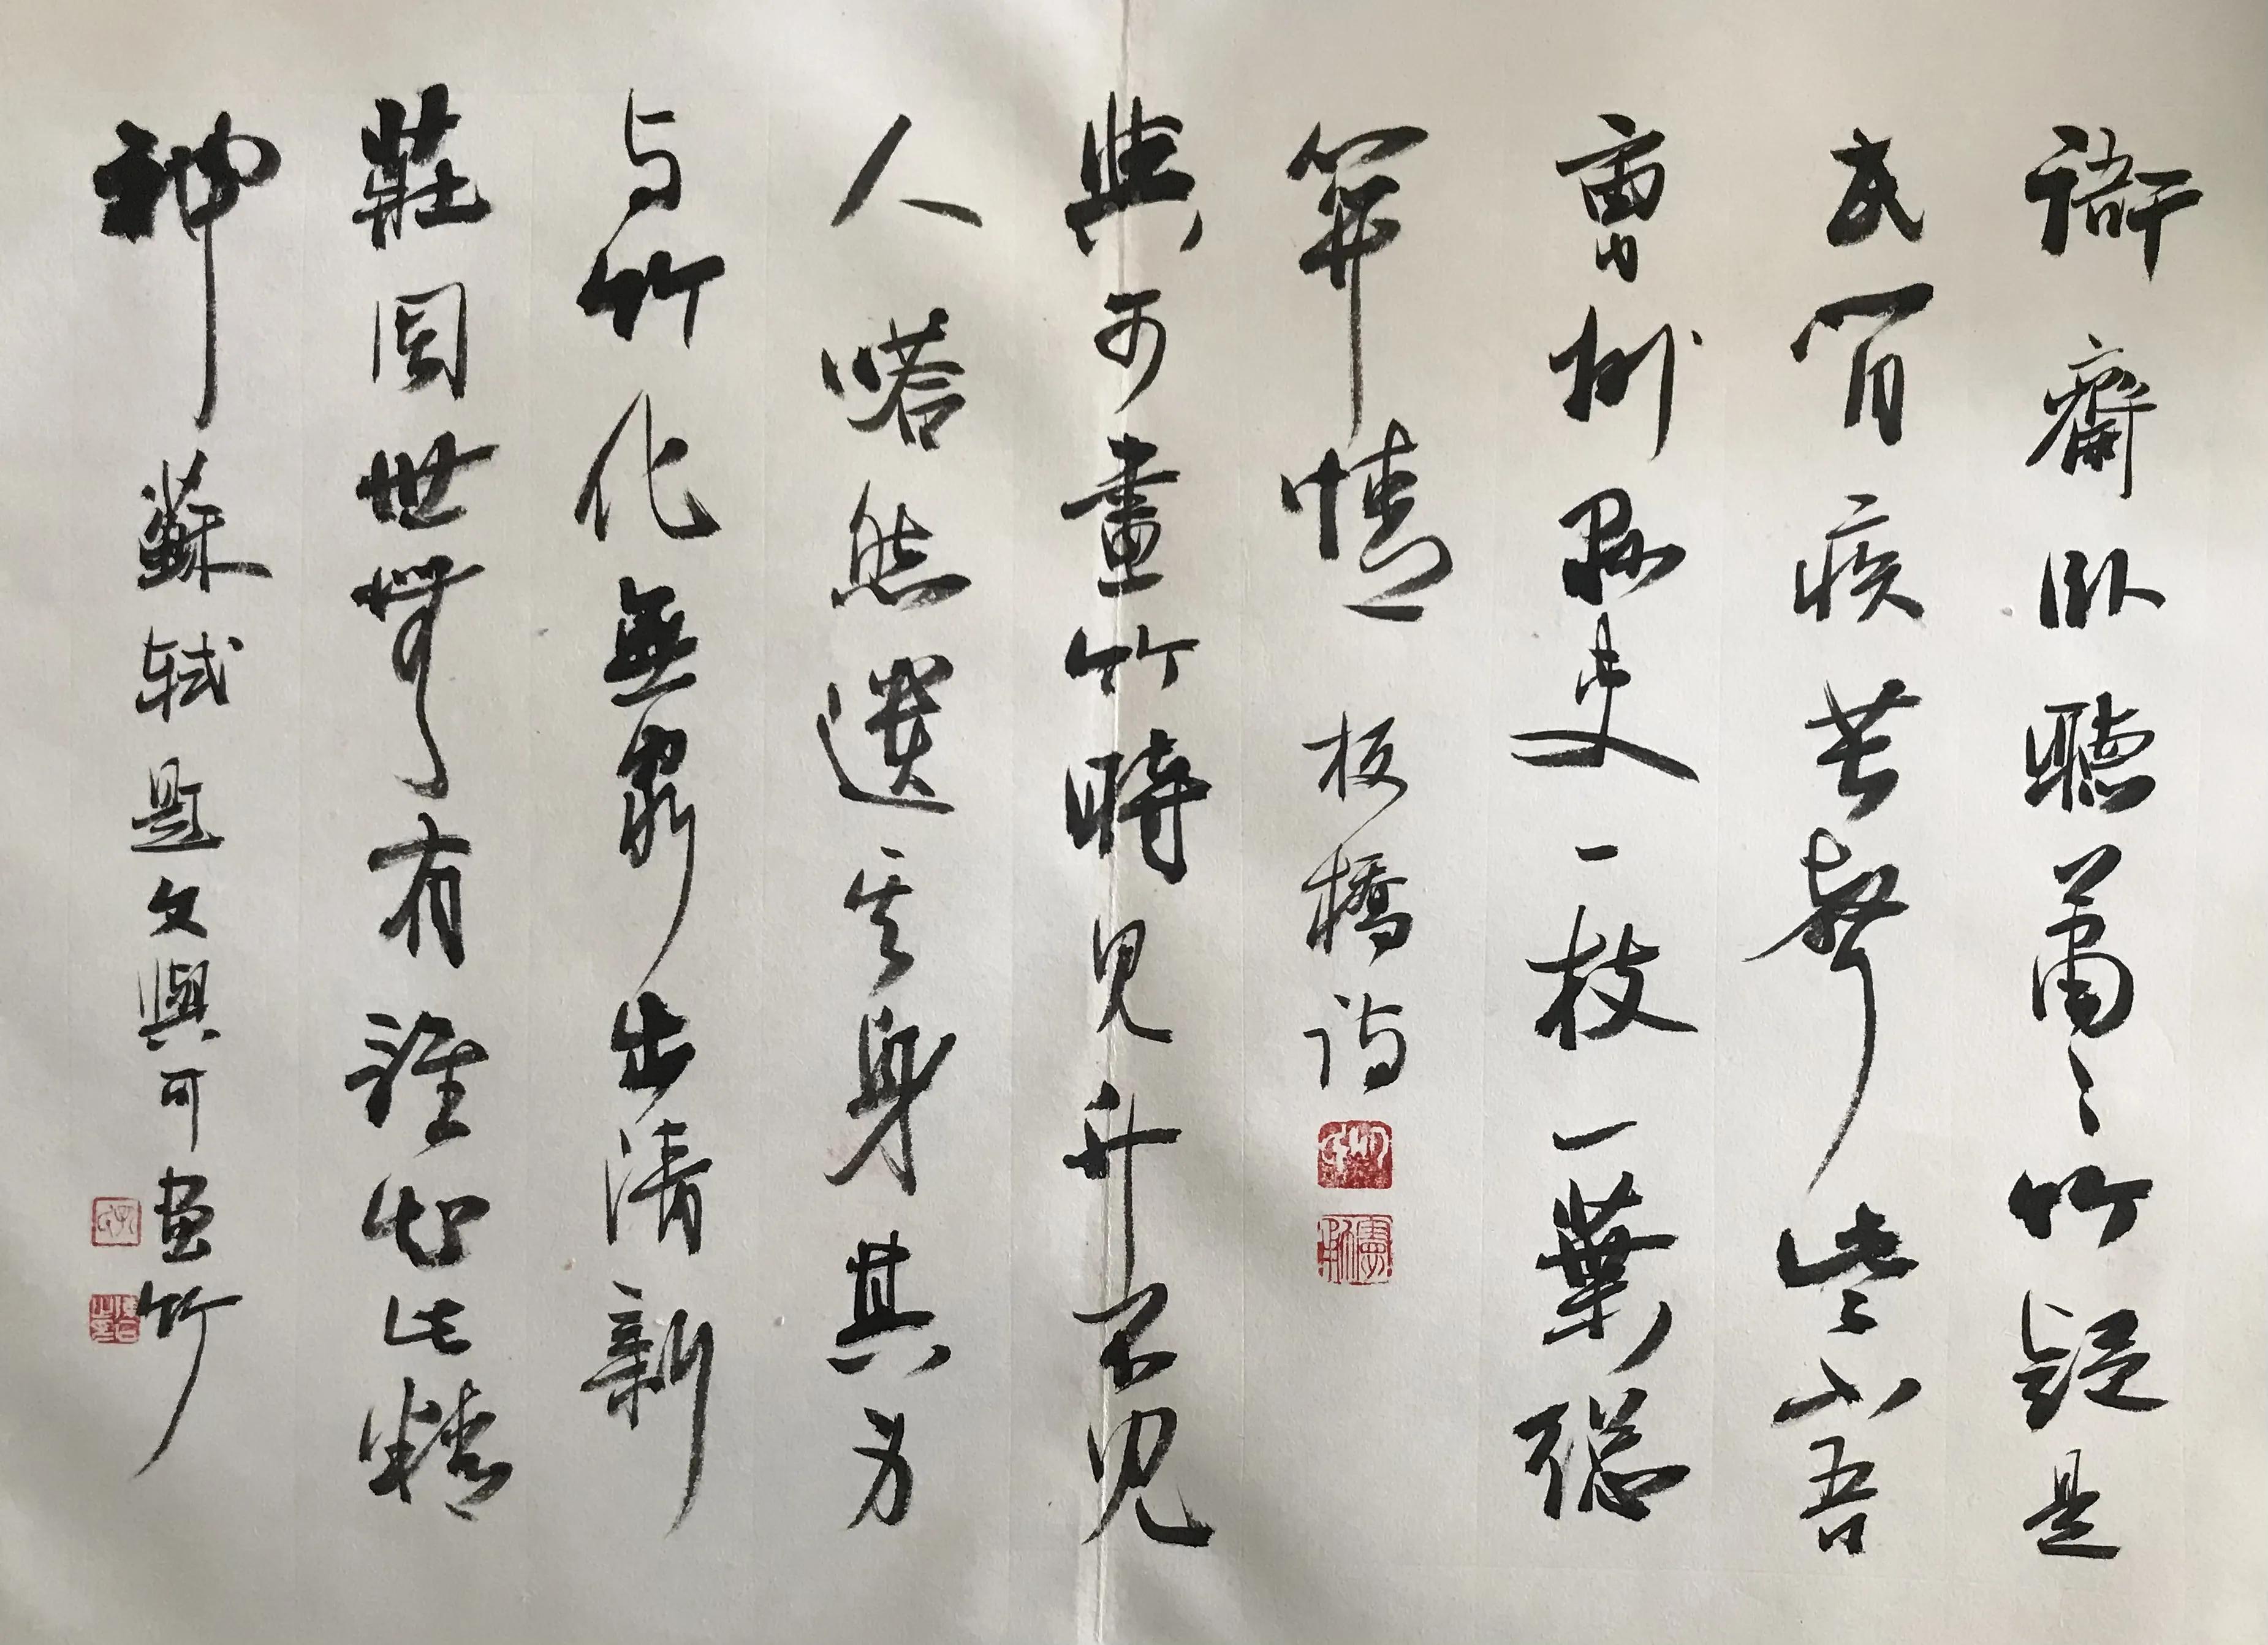 衙齋臥聽蕭〻竹疑是
民間疾苦聲些小吾
曹州縣吏一枝一葉總
關情 板橋詩
與可畫竹時見竹不見
人嗒然遺其身其身
与竹化無窮出清新
莊周世無有誰知此精
神 蘇軾題文與可畫竹